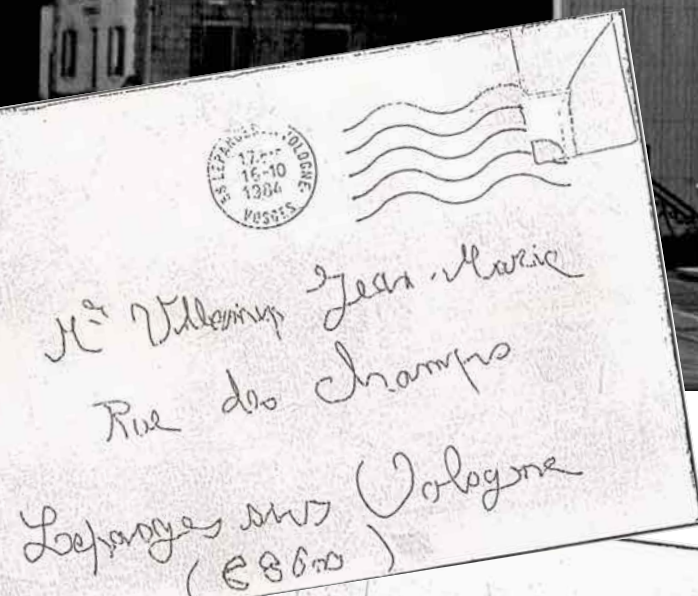 LEPANGES VOLOGNE
16-10
1984
VOSGES
Mr Villemin Jean-Marie
Rue des Champs
Lepanges sur Vologne
(88600)